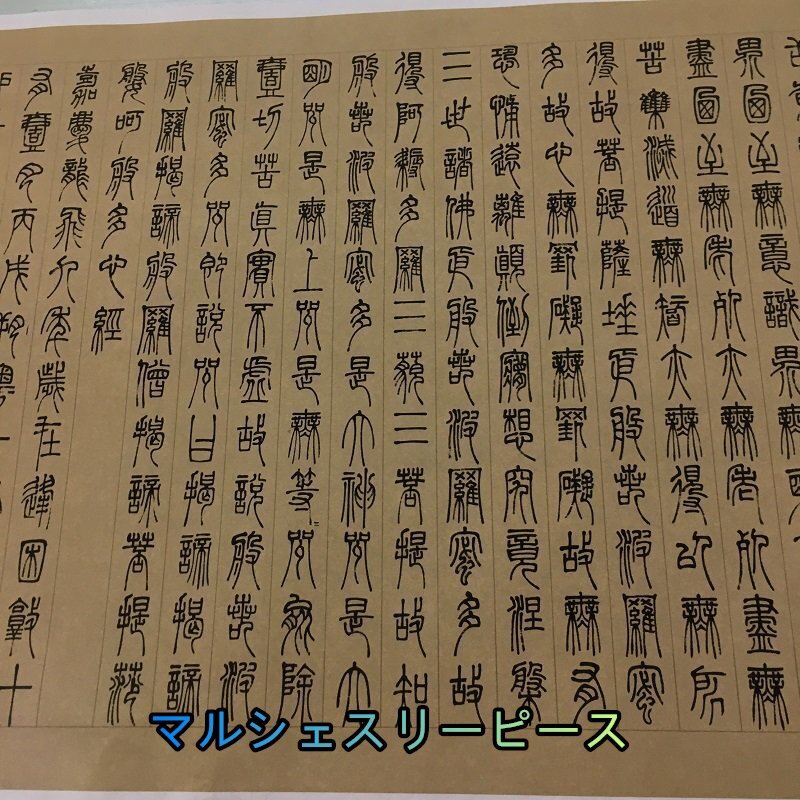 界乃至無意識界無
盡乃至無老死亦無老死盡無
苦集滅道無智亦無得以無所
得故菩提薩埵依般若波羅蜜
多故心無罣礙無罣礙故無有
恐怖遠離顛倒夢想究竟涅槃
三世諸佛依般若波羅蜜多故
得阿耨多羅三藐三菩提故知
般若波羅蜜多是大神咒是大
明咒是無上咒是無等〻咒能除
壹切苦真實不虛故說般若波
羅蜜多咒即說咒曰揭諦揭諦
般羅揭諦般羅僧揭諦菩提莎
婆呵般多心經
嘉慶龍飛九年歲在逢困敦十
有壹月丙戌朔粵
マルシェスリーピース